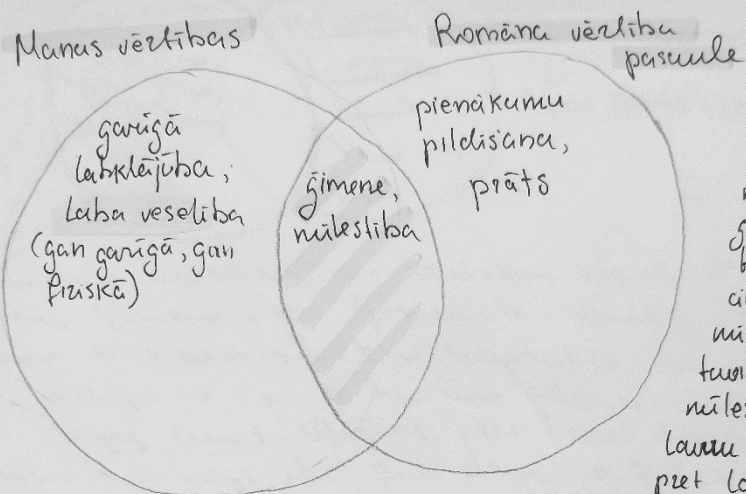 Manas vērtības
Romāna vērtība
pasaule
garīgā
labklājība,
laba veselība
(gan garīgā, gan
fiziskā)
ģimene,
mīlestība
pienākumu
pildīšana,
prāts
pret